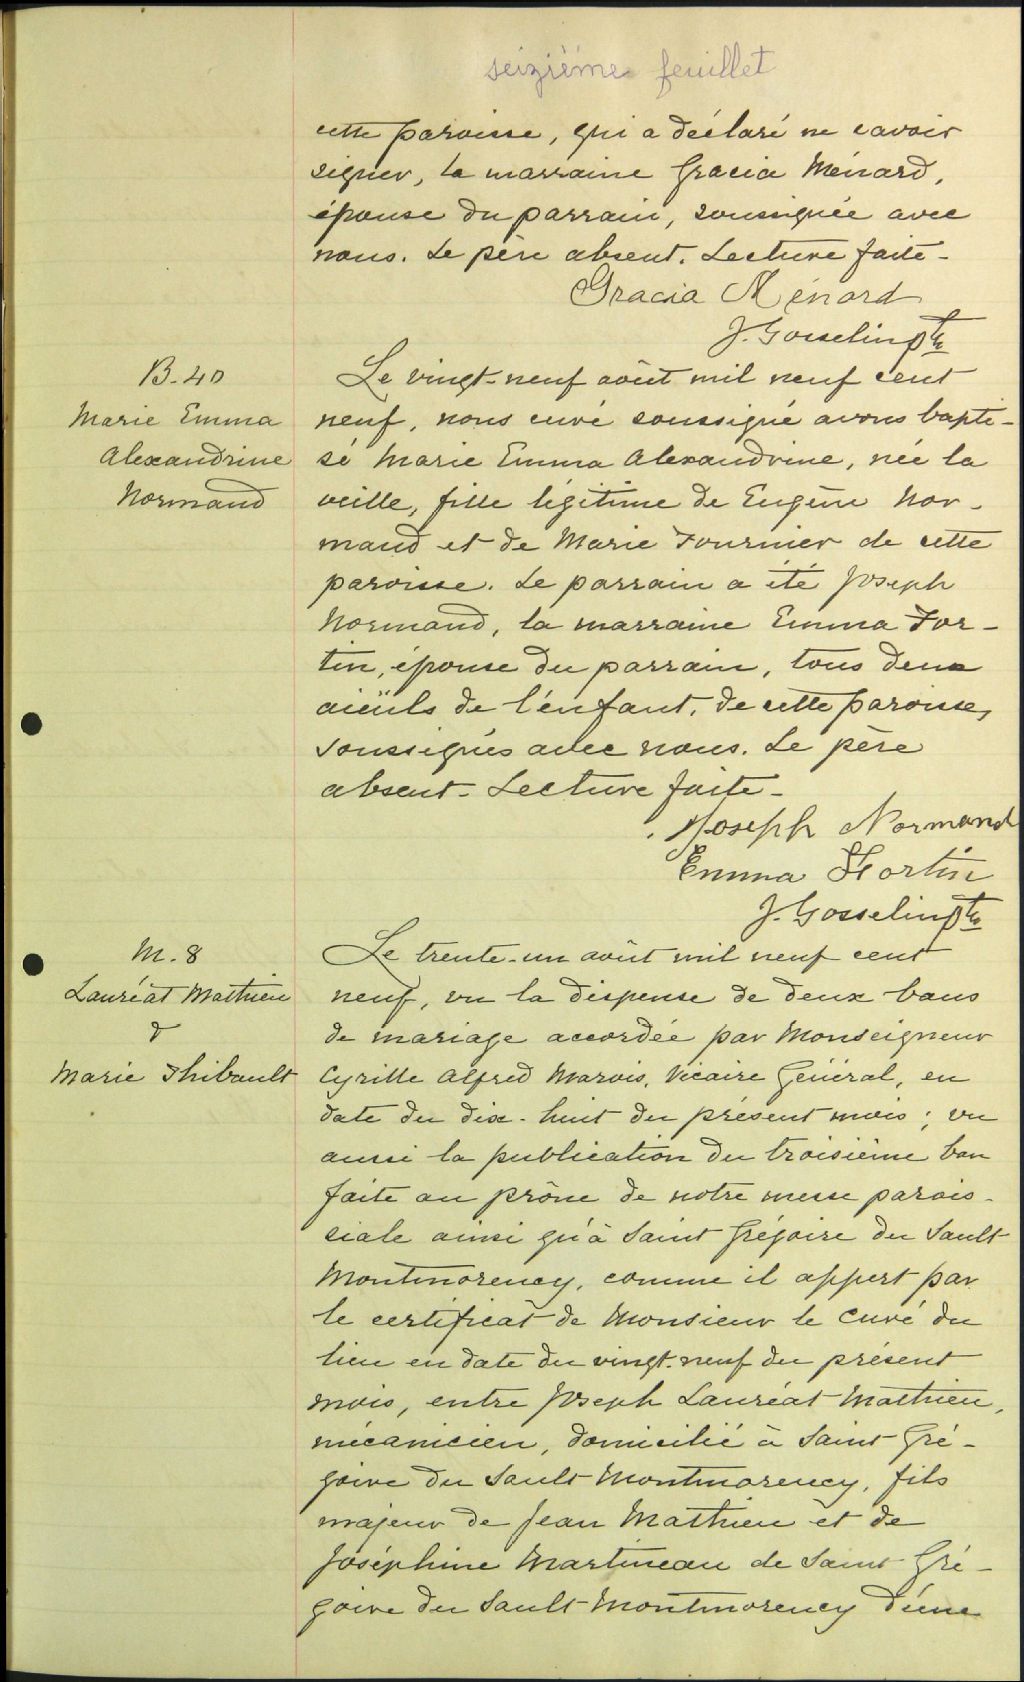 seizième feuillet
cette paroisse, qui a déclaré ne savoir
signer, la marraine Gracia Ménard,
épouse du parrain, soussignée avec
nous. Le père absent. Lecture faite-
Gracia Ménard
J. Gosselin Ptre
B-40
Marie Emma
Alexandrine
Normand
Le vingt-neuf août mil neuf cent
neuf, nous curé soussigné avons bapti-
sé Marie Emma Alexandrine, née la
veille, fille légitime de Eugène Nor-
mand et de Marie Fournier de cette
paroisse. Le parrain a été Joseph
Normand, la marraine Emma For-
tin, épouse du parrain, tous deux
aieüls de l'énfant, de cette paroisse,
soussignés avec nous. Le père
absent- Lecture faite-
Joseph Normand
Emma Fortin
J. Gosselin Ptre
M. 8
Lauréat Mathieu
&
Marie Thibault
Le trente-un août mil neuf cent
neuf, vu la dispense de deux bans
de mariage accordée par Monseigneur
Cyrille Alfred Marois, Vicaire Général, en
date du dix-huit du présent mois; vu
aussi la publication du troisième ban
faite au prône de notre messe parois-
siale ainsi qu'à Saint Grégoire du Sault
Montmorency, comme il appert par
le certificat de Monsieur le Curé du
lieu en date du vingt-neuf du présent
mois, entre Joseph Lauréat Mathieu,
mécanicien, domicilié à Saint Gré-
goire du Sault Montmorency, fils
majeur de Jean Mathieu et de
Joséphine Martineau de Saint Gré-
goire du Sault Montmorency d'une